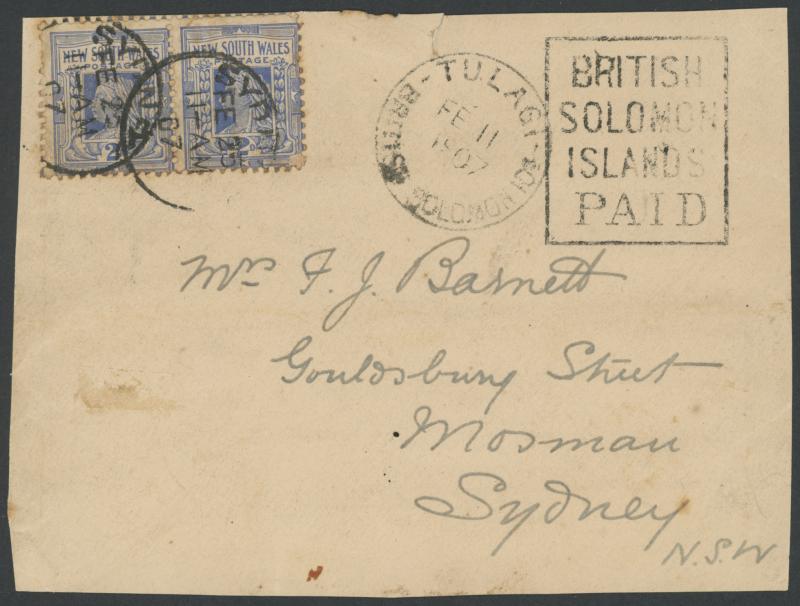 NEW SOUTH WALES
POSTAGE
2
NEW SOUTH WALES
POSTAGE
SYDNEY
FE 25
11-AM
07
SYDNEY
FE 25
11-AM
07
TULAGI
BRITISH SOLOMON ISL
FE 11
1907
BRITISH
SOLOMON
ISLANDS
PAID
Mrs F. J. Barnett
Gouldsbury Street
Mosman
Sydney
N.S.W